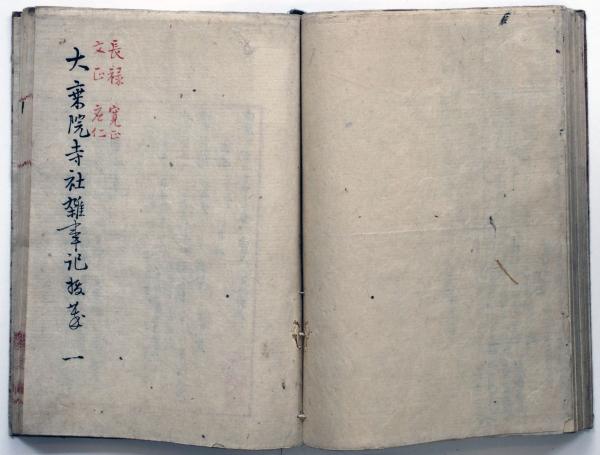 長禄 寛正
文正 応仁
大乗院寺社雑事記抜萃 一